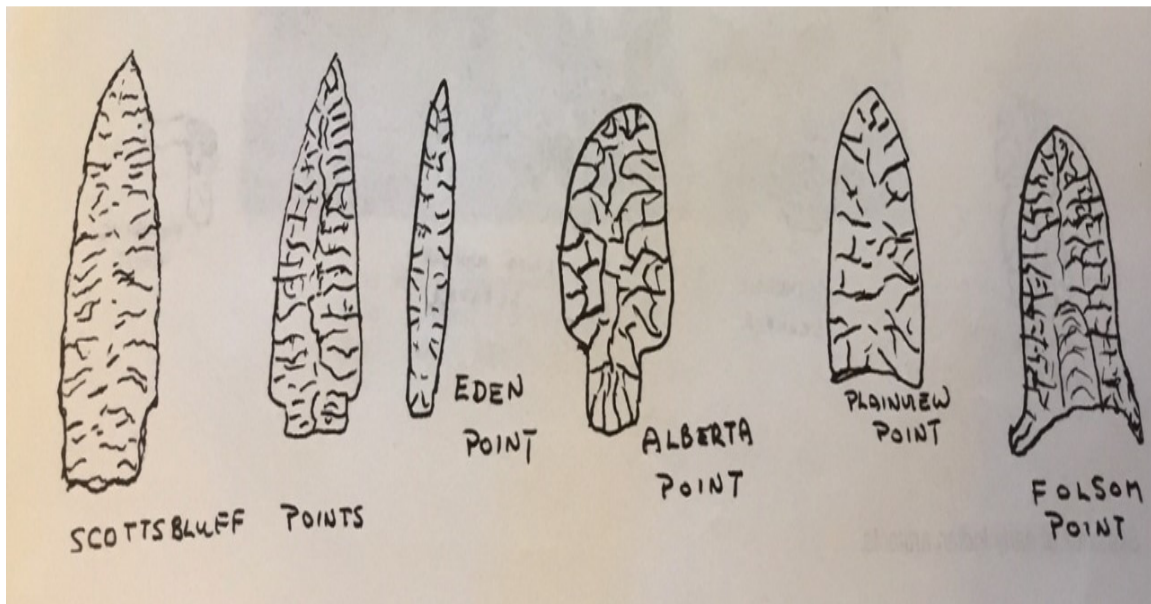 SCOTTSBLUFF POINTS
EDEN
POINT
ALBERTA
POINT
PLAINVIEW
POINT
FOLSOM
POINT